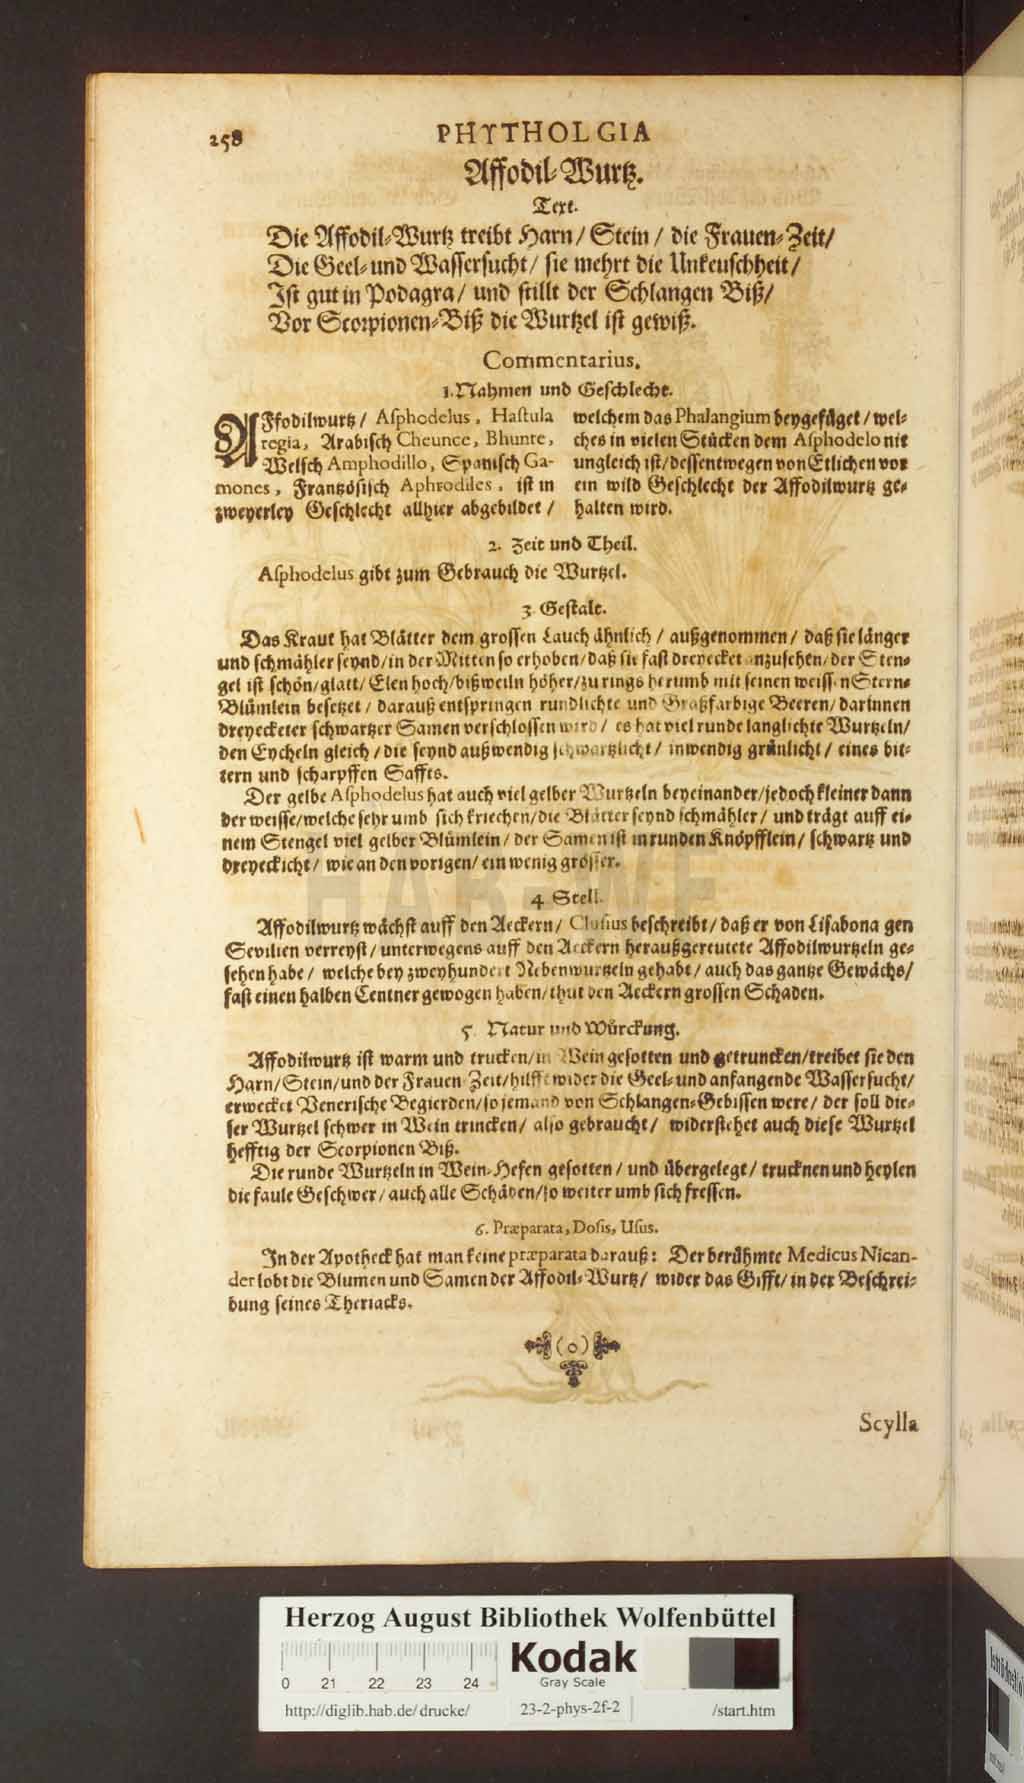 258 PHYTHOLGIA
Affodil-Wurtz.
Text.
Die Affodil-Wurtz treibt Harn/ Stein/ die Frauen-Zeit/
Die Geel- und Wassersucht/ sie mehrt die Unkeuschheit/
Ist gut in Podagra/ und stillt der Schlangen Biß/
Vor Scorpionen-Biß die Wurtzel ist gewiß.
Commentarius.
1. Nahmen und Geschlecht.
AFfodilwurtz/ Asphodelus, Hastula
regia, Arabisch Cheunce, Bhunte,
Welsch Amphodillo, Spanisch Ga-
mones, Frantzösisch Aphrodiles, ist in
zweyerley Geschlecht allhier abgebildet/
welchem das Phalangium beygefüget/ wel-
ches in vielen Stücken dem Asphodelo nit
ungleich ist/ dessentwegen von Etlichen vor
ein wild Geschlecht der Affodilwurtz ge-
halten wird.
2. Zeit und Theil.
Asphodelus gibt zum Gebrauch die Wurtzel.
3. Gestalt.
Das Kraut hat Blätter dem grossen Lauch ähnlich/ außgenommen/ daß sie länger
und schmähler seynd/ in der Mitten so erhoben/ daß sie fast dreyecket anzusehen/ der Sten-
gel ist schön/ glatt/ Elen hoch/ bißweiln höher/ zu rings herumb mit seinen weissen Stern-
Blümlein besetzet/ darauß entspringen rundlichte und Graßfarbige Beeren/ darinnen
dreyecketer schwartzer Samen verschlossen wird/ es hat viel runde langlichte Wurtzeln/
den Eycheln gleich/ die seynd außwendig schwartzlicht/ inwendig grünlicht/ eines bit-
tern und scharpffen Saffts.
Der gelbe Asphodelus hat auch viel gelber Wurtzeln beyeinander/ jedoch kleiner dann
der weisse/ welche sehr umb sich kriechen/ die Blätter seynd schmähler/ und trägt auff ei-
nem Stengel viel gelber Blümlein/ der Samen ist in runden Knöpfflein/ schwartz und
dreyeckicht/ wie an den vorigen/ ein wenig grösser.
4. Stell.
Affodilwurtz wächst auff den Aeckern/ Clusius beschreibt/ daß er von Lisabona gen
Sevilien verreyst/ unterwegens auff den Aeckern heraußgereutete Affodilwurtzeln ge-
sehen habe/ welche bey zweyhundert Nebenwurtzeln gehabt/ auch das gantze Gewächs/
fast einen halben Centner gewogen haben/ thut den Aeckern grossen Schaden.
5. Natur und Würckung.
Affodilwurtz ist warm und trucken/ in Wein gesotten und getruncken/ treibet sie den
Harn/ Stein/ und der Frauen Zeit/ hilfft wider die Geel- und anfangende Wassersucht/
erwecket Venerische Begierden/ so jemand von Schlangen-Gebissen were/ der soll die-
ser Wurtzel schwer in Wein trincken/ also gebraucht/ widerstehet auch diese Wurtzel
hefftig der Scorpionen Biß.
Die runde Wurtzeln in Wein-Hefen gesotten/ und übergelegt/ trucknen und heylen
die faule Geschwer/ auch alle Schäden/ so weiter umb sich fressen.
6. Præparata, Dosis, Usus.
In der Apotheck hat man keine præparata darauß: Der berühmte Medicus Nican-
der lobt die Blumen und Samen der Affodil-Wurtz/ wider das Gifft/ in der Beschrei-
bung seines Theriacks.
(o)
Scylla
HAB-WF
Herzog August Bibliothek Wolfenbüttel
0 21 22 23 24
Kodak
Gray Scale
http://diglib.hab.de/drucke/ 23-2-phys-2f-2 /start.htm